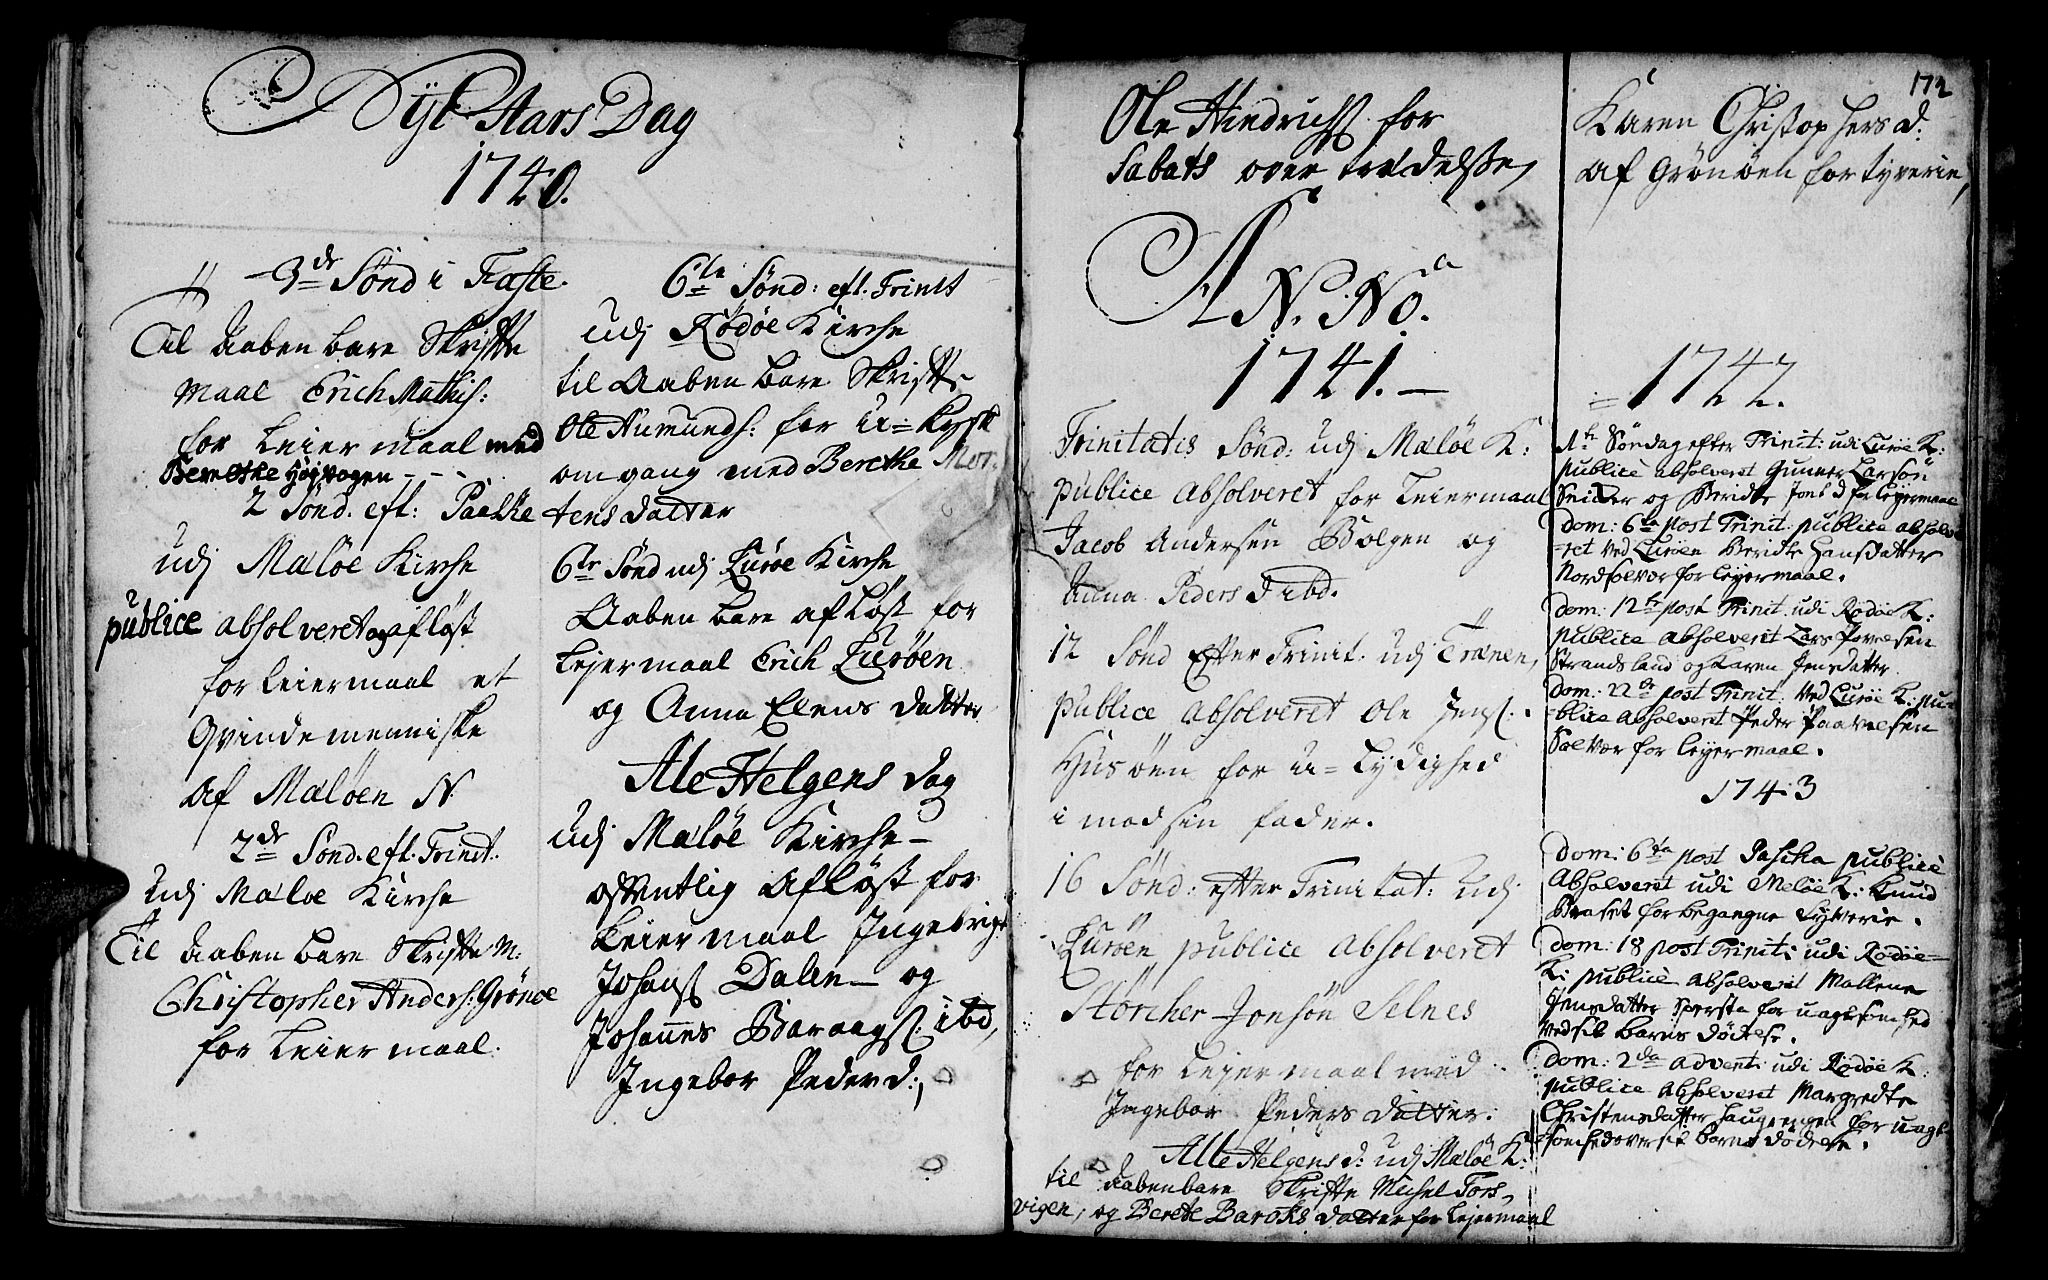 Nyt Aars Dag
1740.
3de Sønd i Faste.
Til Aabenbare Skrifte
maal Erich Mathis:
for Leiermaal med
Berethe Høyvogen - - -
2 Sønd. eft: Paaske
udj Meløe Kirche
publice absolveret og afløst
for Leiermaal et
Qvindemenniske
af Meløen N
2de Sønd. eft. Trinit:
udj Meløe Kirche
Til Aabenbare Skrifte M:
Christopher Anders: Grønøe
for Leiermaal.
6te Sønd: eft. Trinit
udj Rødøe Kirche
til Aabenbare Skrifte
Ole Aumunds: for u=kysk
omgang med Berethe Mor-
tensdatter
6te Sønd udj Lurøe Kirche
Aabenbare afløst for
Lejermaal Erich Lurøen
og Anna Elens datter
Ale Helgens dag
udj Meløe Kirche
offentlig afløst for
Leiermaal Ingebrigt
Johans: Dalen og
Johannes Baraags: ibd,
Ingebor Peder d:,
Ole Hindrichs: for
Sabats overtrædelse,
ANNo
1741.
Trinitatis Sønd: udj Meløe K:
publice absolveret for Leiermaal
Jacob Andersen Bolgen og
Anna Peders D ibd.
12 Sønd Efter Trinit: udj Trænen,
publice absolveret Ole Jens:
Husøen for u=lydighed
imod sin fader.
16 Sønd: efter Trinitat: udj
Lurøen publice absolveret
Størcher Jonsøn Selnes
for Lejermaal med
Ingebor Peders datter.
Alle Helgens d: udj Meløe K:
til Aabenbare Skrifte Michel Tors-
vigen, og Berete Baroks datter for Lejermaal
172
Karen Christophers d:
af Grønøen for tyverie,
1742.
1te Søndag efter Trinit: udi Lurøe K:
publicè absolveret Gunner Larsøn
Snider og Beridte Jons d for Leyermaal
Dom: 6ta post Trinit: publice absolve
=ret ved Lurøen Beridte Hansdatter
Nordsolvær for Leyermaal.
Dom: 12te post Trinit: udi Rødøe K:
publice absolverit Lars Povelsen
Strandsland og Karen Jensdatter
Dom: 22de post Trinit: ved Lurøe K: pu=
=blice absolveret Peder Paavelsen
Solvær for Leyermaal.
1743
Dom: 6ta post Pascha publicè
Absolveret udi Meløe K: Knud
Braset for begangne Tyverie.
Dom: 18 post Trinit: udi Rødøe=
K: publicè absolverit Mallene
Jensdatter Sperstø for uagtsomhed
ved sit barns dødelse.
Dom: 2da Advent: udi Rødøe K:
publice absolveret Margredte
Christensdatter Haugvigen for uagt-
somhed over sit barns dødelse.